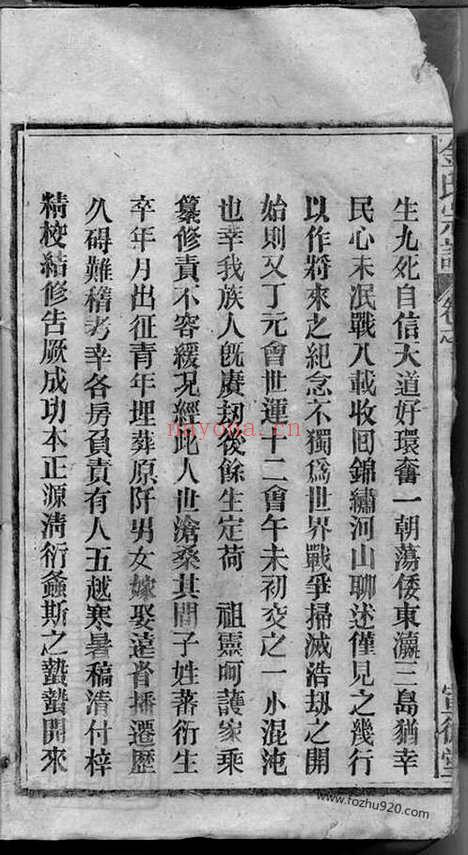 生九死自信天道好環奮一朝蕩倭東瀛三島猶幸
民心未泯戰八載收回錦繡河山聊述僅見之幾行
以作將來之紀念不獨爲世界戰爭掃滅浩劫之開
始則又丁元會世運十二會午未初交之一小混沌
也幸我族人既賡刼後餘生定荷 祖靈呵護家乘
纂修責不容緩况經此人世滄桑其間子姓蕃衍生
卒年月出征青年埋葬原阡男女嫁娶遠眘播遷歷
久碍難稽考幸各房負責有人五越寒暑稿清付梓
精校結修吿厥成功本正源清衍螽斯之蟄蟄開來
金氏宗譜
nayona.cn
www.fozhu920.com